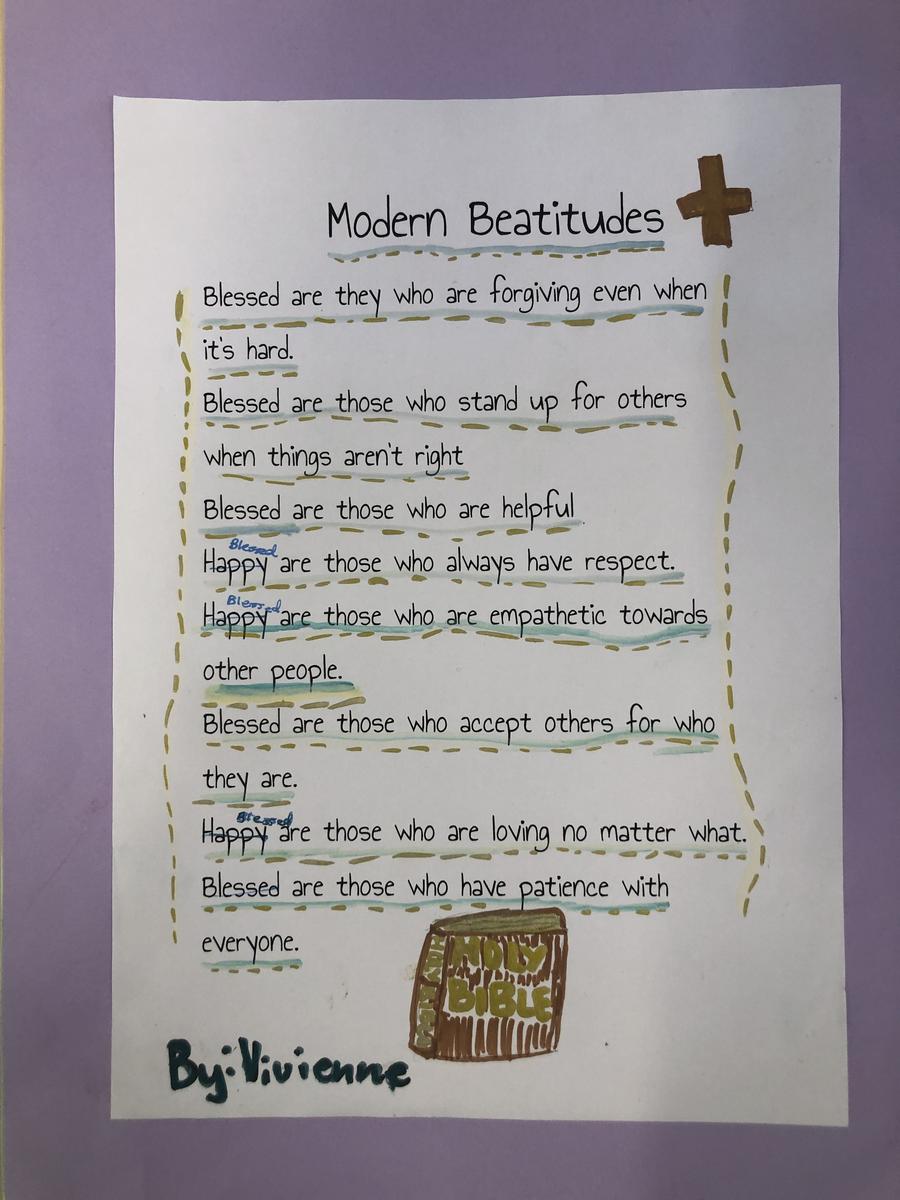 Modern Beatitudes
Blessed are they who are forgiving even when
it's hard.
Blessed are those who stand up for others
when things aren't right
Blessed are those who are helpful
Blessed
Happy are those who always have respect.
Blessed
Happy are those who are empathetic towards
other people.
Blessed are those who accept others for who
they are.
Blessed
Happy are those who are loving no matter what.
Blessed are those who have patience with
everyone.
HOLY
BIBLE
HOLY BIBLE
By: Vivienne